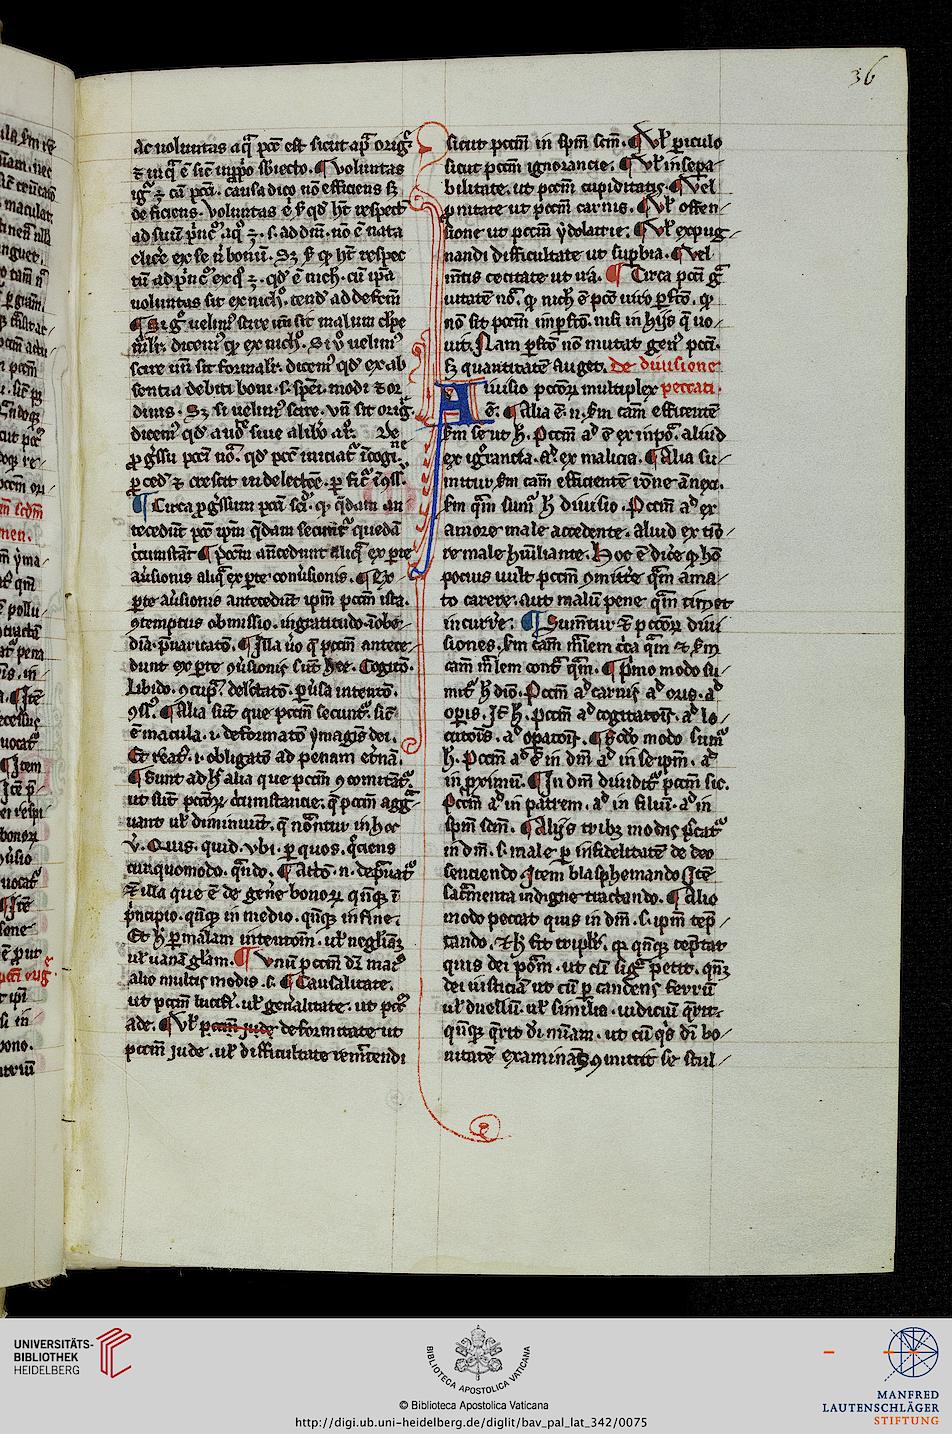 36
ac voluntas a qͣ pctͫ est sicut apͣ orig͛
⁊ in qͣ ē sic̄ in ꝓpͦo sbiecto. ¶ Voluntas
igͬ ⁊ cā pcti. causa dico nō efficiens sꝫ
deficiens. voluntas
ad suū pͥncͦ a qͦ ⁊. s. ad dm̄. nō ē nata
elicͤ ex se nͥ bonū. Sꝫ ꝙ ht̄ respec
tū ad pͥncͦ ex qͦ ⁊. qd̓ ē nich. cū ipā
voluntas sit ex nichͦ. tend̓ ad defctm̄
¶ Si gͦ velimͦ scire vn̄ sit malum clpe
dicemͦ ꝙ ex nichͦ. Si vͦ velimͦ
scire vn̄ sit formalr̄. dicemͦ qd̓ ex ab
sentia debiti boni. s. spēi. modi ⁊ or
dinis. Sꝫ si velimͦ scire. vn̄ sit orig͛.
dicemͦ qd̓ siue alibͦ De
ꝓgͤssu pcti noͣ. qd̓ pctͫ iniciatͬ ī cogi.ne
ꝓced̓ ⁊ crescit in delectōe. ꝑficͬ ī ꝯss̄.
¶ Circa ꝓgͤssum pcti sciͬ. qͥ q̄dam an
tecedūt pctͫ ipm̄ q̄dam secuntͬ quedā
cͬcumstātͬ ¶ pctm̄ an̄cedunt aliqͣ ex pͬte
aūsionis aliqͣ ex pͬte conūsionis. ¶ Ex
pͬte aūsionis antecedūt ipm̄ pctm̄ ista.
ꝯtemptus obmissio. ingratitudo. īobe
dīa. pͬuaricatō. ¶ Illa vͦo q̄ pctm̄ antece
dunt ex pͬte ꝯūsionis sūt hec. Cogitō.
Libido. ꝯcupͥ delctatō. pͬūsa intentō.
ꝯss̄ꝰ. ¶ Alia sūt que pctm̄ secuntͬ. sic̄
ē macula. i. deformatō ymagis dei.
Et reatꝰ. i. obligatō ad penam et̓nā.
¶ Sunt ad hͨ alia que pctm̄ ꝯcomitātͬ.
ut sūt pctoꝝ cͬcumstancie. q̄ pctm̄ agg͛
uant vl̓ diminuūt. q̄ notantur in hoc
v̓. Quis. quid. vbi. ꝑ quos. qͦciens
cur. quomodo. qͣndo.
⁊ illa que ē de gen̓e bonoꝝ qn̄qꝫ ī
pͥncipio. qn̄qꝫ in medio. qn̄qꝫ in fine.
Et hͨ ꝑ malam intentōm̄. vl̓ negliām
vl̓ vanā glām. ¶ Vnū pctm̄ dͬ maiꝰ
alio multis modis. s. ¶ Causalitate.
ut pctm̄ lucifi. vl̓ gen̓alitate. ut pctͫ
ade. ¶ Vl̓ pctm̄ jude deformitate ut
pctm̄ jude. vl̓ difficultate remittendi
sicut pctm̄ in spm̄ scm̄. ¶ Vl̓ ꝑiculo
sicut pctm̄ ignorancie. ¶ Vl̓ insepa
bilitate. ut pctm̄ cupiditatis. ¶ Vel
ꝓnitate ut pctm̄ carnis. ¶ Vl̓ offen
sione ut pctm̄ ydolatrie. ¶ Vl̓ expug
nandi difficultate ut suꝑbia. ¶ Vel
mn̄tis cecitate ut ¶ Circa pcti gͣ
uitatē noͣ. ꝙ nich̓ ē pctō viro ꝑfctō. ꝙ
nō sit pctm̄ imꝑfctō. nisi in hijs q̄ vo
uit. Nam ꝑfctō nō mutat genꝰ pcti.
sꝫ quantitatē auget. De diuisione
Diuisio pctōꝝ multiplex peccati.
ē. ¶ Alia ē. n. scd̓m cām efficientē
scd̓m se ut hͨ. Pctm̄ aͩ ē ex inpōͣ. aliud
ex igͬrancia. aͩ. ex malicia. ¶ Alia su
mitur scd̓m cām efficientē rōne ānexi.
scd̓m qm̄ sumiͬ hͨ diuisio. Pctm̄ aͩ ex
amore male accedente. aliud ex tīo
re male huīliante. Hoc ē dicͤ ꝙ hō
pocius vult pctm̄ ꝯmitt̓e qͣm ama
to carere. aut malū pene qͣm timet
incurr̓e. ¶ Sumūtur ⁊ pctōꝝ diui
siones. scd̓m cām mālem cͬca qͣm ⁊ scd̓m
cām mālem contͣ qͣm. ¶ Pͥmo modo su
mitͬ hͨ diō. Pctm̄ aͩ carnis aͩ oris. aͩ
oꝑis. It̄ hͨ. pctm̄ aͩ cogitatōis. aͩ lo
cutōis. aͩ oꝑatōis. ¶ Scd̓o modo sumiͬ
hͨ. Pctm̄ aͩ ē in dm̄. aͩ in se ipm̄. aͩ
in pͬximū. ¶ In dm̄ diuiditͬ pctm̄ sic.
Pctm̄ aͩ in patrem. aͩ in filiū. aͩ in
spm̄ scm̄. ¶ Alijs tribꝫ modis pͤcatͬ
in dm̄. s. male ꝑ infidelitatē de deo
senciendo. Item blasphemando. Itē
sacͬmenta indigne tractando. ¶ Alio
modo peccat quis in dm̄. s. ipm̄ tēp
tando. ⁊ hͨ fit triplr̄. qꝛ qn̄qꝫ tēptat
quis dei potm̄. ut cū sigͣ petit. qn̄qꝫ
dei iusticiā ut cū ꝑ candens ferrū
vl̓ duellū. vl̓ similia. iudiciū qͬrit.
qn̄qꝫ qͬrit di mīam. ut cū qͥs di bo
nitatē examinās ꝯmittit se stul
UNIVERSITÄTS-
BIBLIOTHEK
HEIDELBERG
BIBLIOTECA APOSTOLICA VATICANA
© Biblioteca Apostolica Vaticana
http://digi.ub.uni-heidelberg.de/diglit/bav_pal_lat_342/0075
MANFRED
LAUTENSCHLÄGER
STIFTUNG